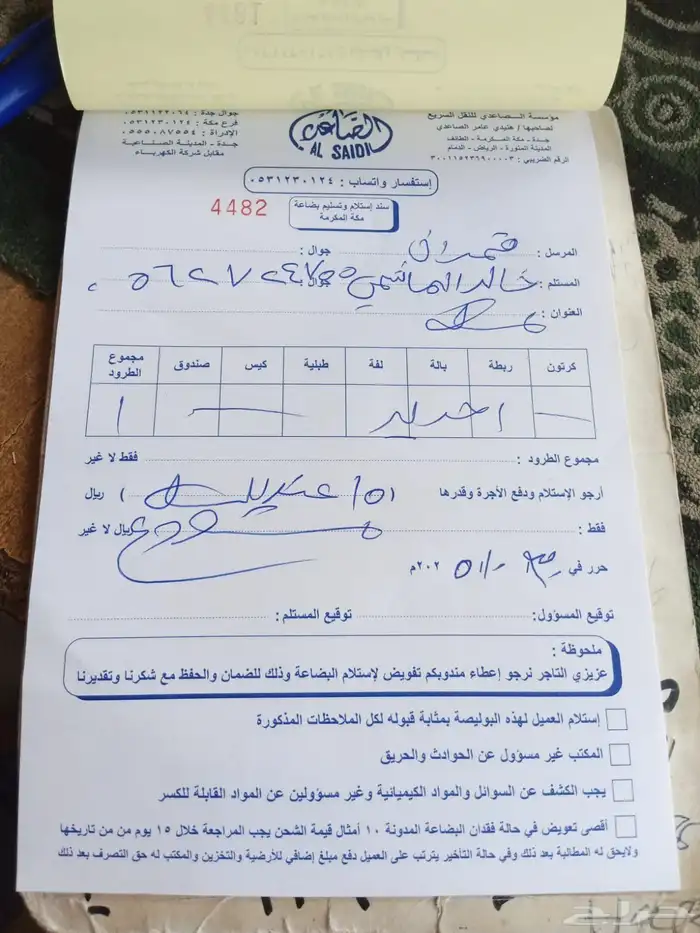 مؤسسة الصاعدي للنقل السريع
لصاحبها / هنيدي عامر الصاعدي
جدة - مكة المكرمة - الطائف
المدينة المنورة - الرياض - الدمام
الرقم الضريبي : ٣٠٠١١٥٢٣٦٩٠٠٠٠٣
الصاعدي
AL SAIDI
جوال جدة : ٠٥٣١١٢٢٠٦٤
فرع مكة : ٠٥٣١٢٣٠١٢٤
الإدراة : ٠٥٥٥٠٨٧٥٥٤
جدة - المدينة الصناعية
مقابل شركة الكهرباء
إستفسار واتساب : ٠٥٣١٢٣٠١٢٤
سند إستلام وتسليم بضاعة
مكة المكرمة
4482
المرسل : جوال :
المستلم : خالد الهاشمي جوال :
العنوان :
كرتون ربطة بالة لفة طبلية كيس صندوق مجموع الطرود
١ حديد ١
مجموع الطرود : فقط لا غير
أرجو الإستلام ودفع الأجرة وقدرها ( ) ريال
فقط : ريال لا غير
حرر في ٢٠٢م
توقيع المسؤول : توقيع المستلم :
ملحوظة :
عزيزي التاجر نرجو إعطاء مندوبكم تفويض لإستلام البضاعة وذلك للضمان والحفظ مع شكرنا وتقديرنا
إستلام العميل لهذه البوليصة بمثابة قبوله لكل الملاحظات المذكورة
المكتب غير مسؤول عن الحوادث والحريق
يجب الكشف عن السوائل والمواد الكيميائية وغير مسؤولين عن المواد القابلة للكسر
أقصى تعويض في حالة فقدان البضاعة المدونة ١٠ أمثال قيمة الشحن يجب المراجعة خلال ١٥ يوم من من تاريخها
ولايحق له المطالبة بعد ذلك وفي حالة التأخير يترتب على العميل دفع مبلغ إضافي للأرضية والتخزين والمكتب له حق التصرف بعد ذلك
حراج